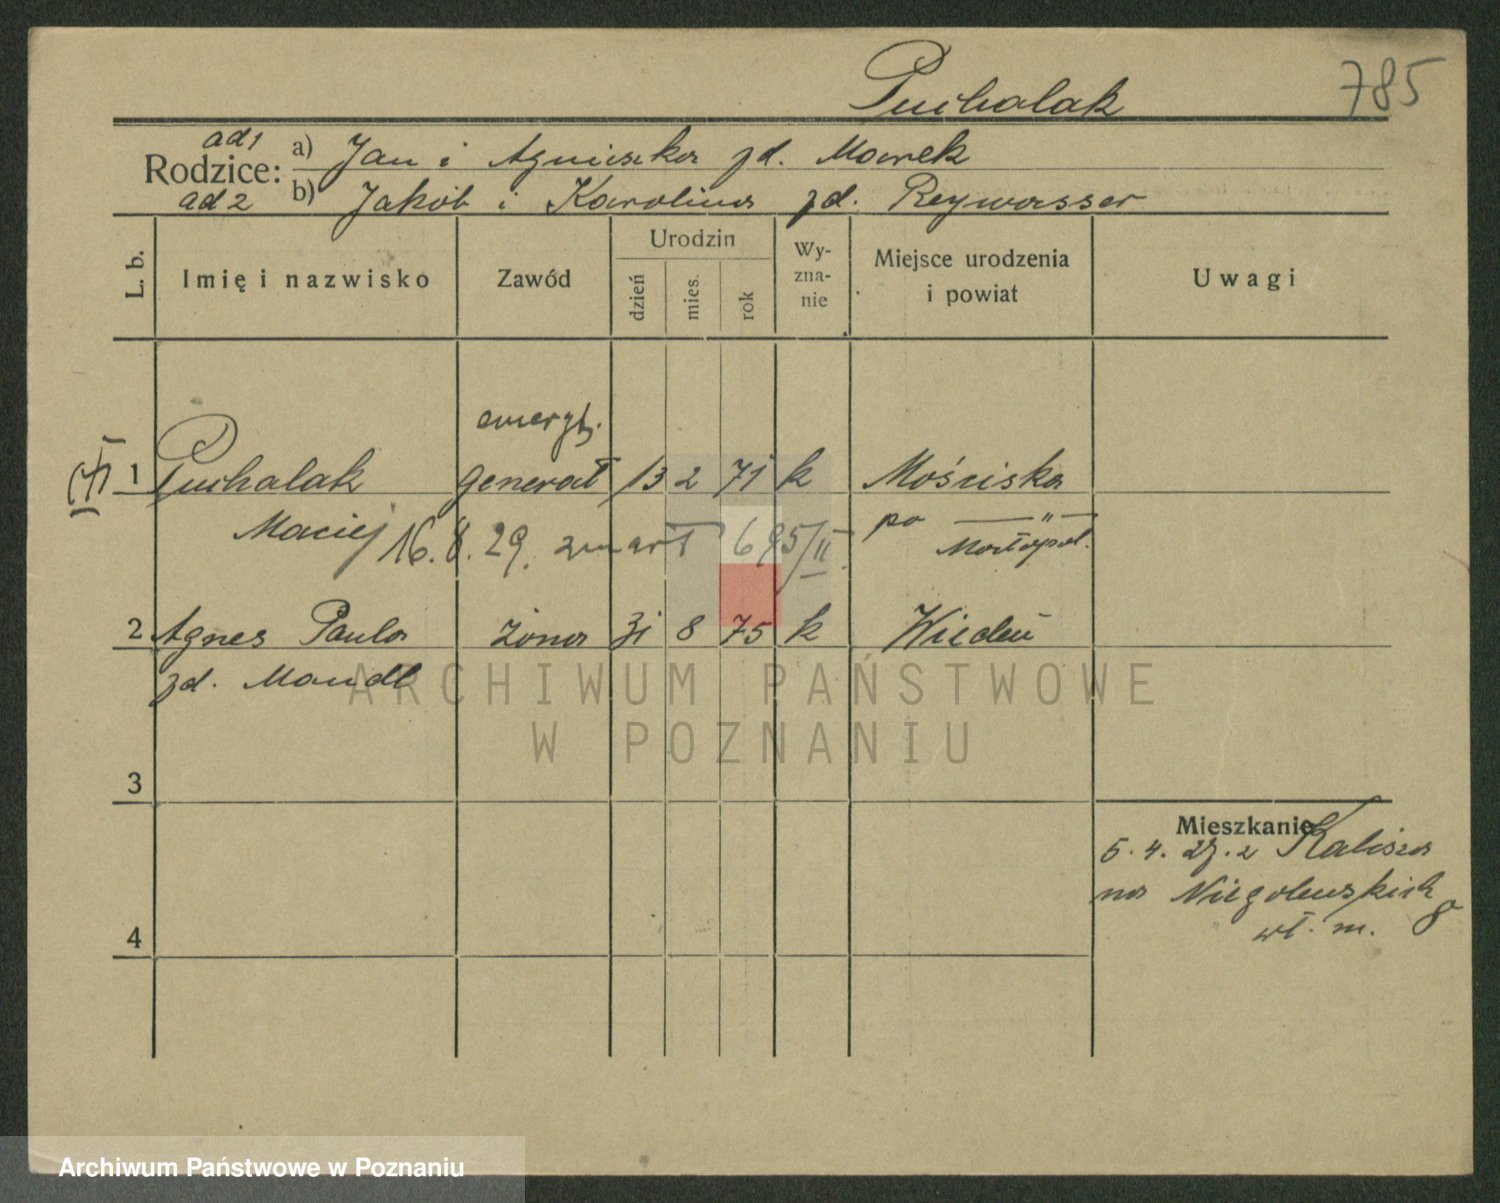 Puchalak
785
ad 1
Rodzice: a) Jan i Agnieszka zd. Marek
ad 2 b) Jakób i Karolina zd. Reywasser
L. b.
Imię i nazwisko
Zawód
Urodzin
dzień
mies.
rok
Wy-
zna-
nie
Miejsce urodzenia
i powiat
Uwagi
emeryt.
1 Puchalak generał 13 2 71 k Mościska
Maciej po — " —
16.8.29. zmarł 695/II
Małopol.
2 Agnes Paula żona 31 8 75 k Wiedeń
zd. Mandl
ARCHIWUM PAŃSTWOWE
W POZNANIU
3
Mieszkanie
5.4.27. z Kalisza
na Niegolewskich 8
wł. m.
4
Archiwum Państwowe w Poznaniu